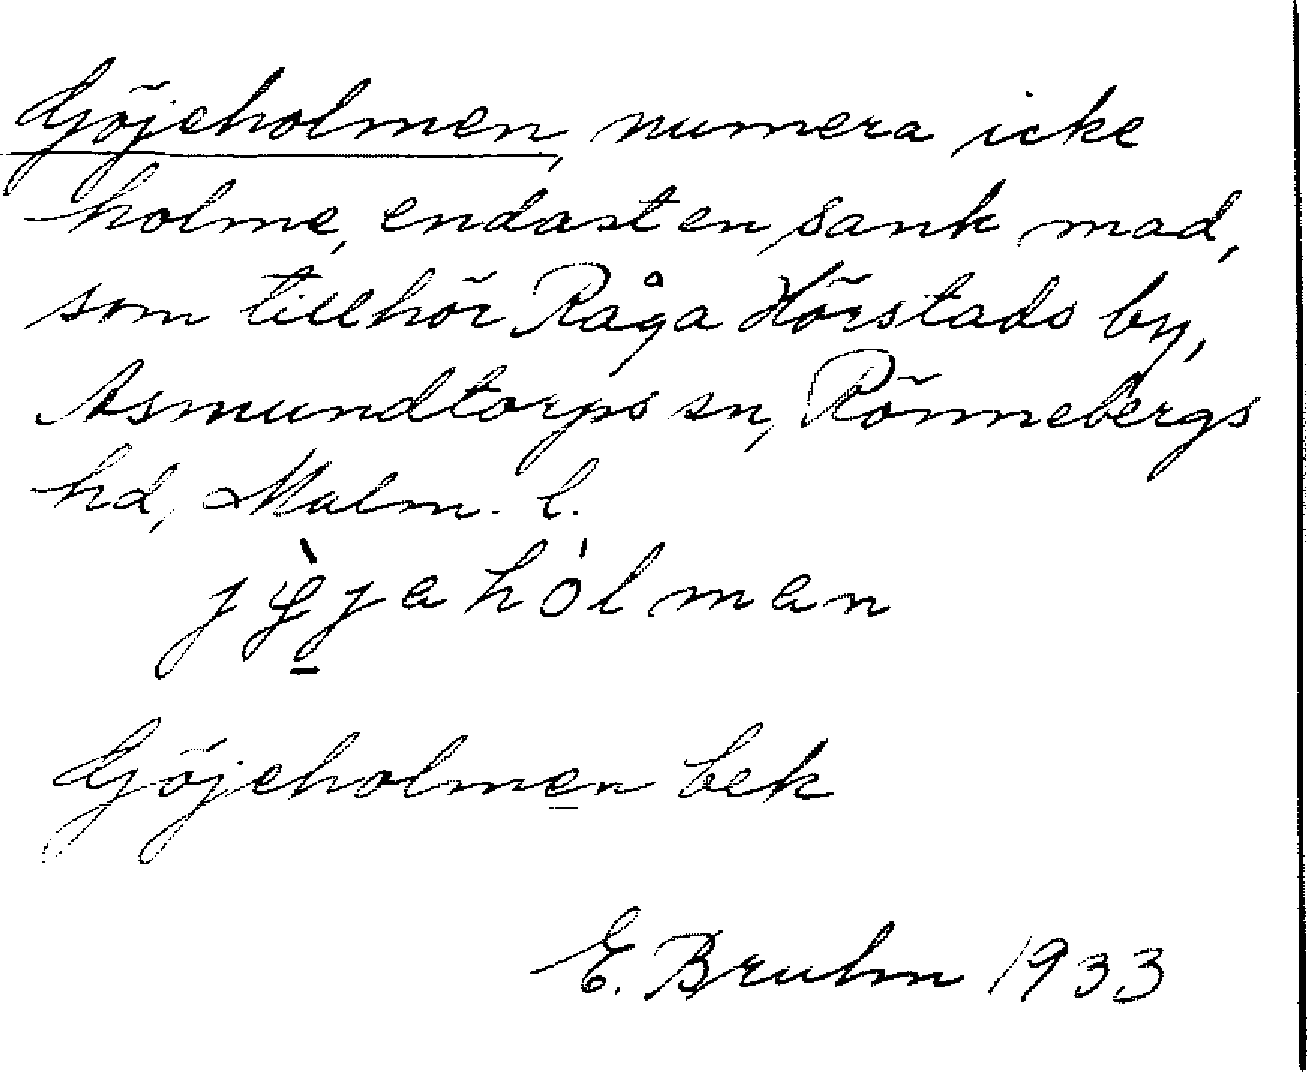 Göjeholmen, numera icke
holme, endast en sank mad,
som tillhör Råga Hörstads by,
Asmundtorps sn, Rönnebergs
hd, Malm. l.
hòlman
Göjeholmen bek
E. Bruhn 1933